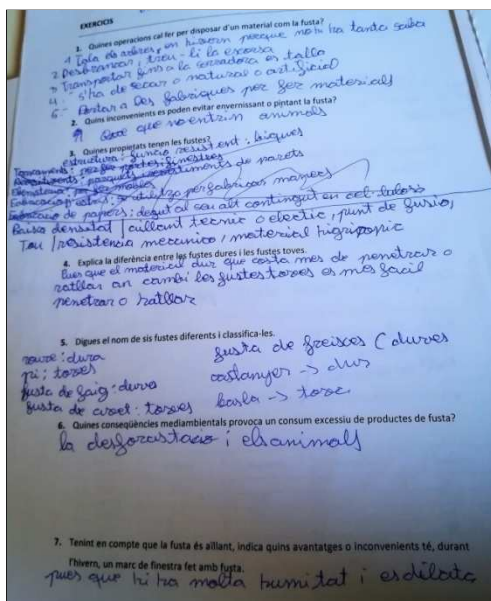 EXERCICIS
1. Quines operacions cal fer per disposar d'un material com la fusta?
1 Tala de arbres, en hivern perque no hi ha tanta saba
2 Desbrancar, treu-li la escorsa
3 Transportar fins a la serradora es talla
4 s'ha de secar o natural o artificial
5- Portar a les fabriques per fer materials
2. Quins inconvenients es poden evitar envernissant o pintant la fusta?
que no entrin animals
3. Quines propietats tenen les fustes?
estructura: funcio resistent: bigues
Tancaments: per fer portes, finestres
Revestiments: parquets, revestiments de parets
per fer mobles
utilitza per fabricar manecs
Fabricacio de papers: degut al seu alt contingut en cel·lulosa
Baixa densitat / aillant tecnic o electic, punt de fusio,
Tou / resistencia mecanica, material higroscopic
4. Explica la diferència entre les fustes dures i les fustes toves.
Pues que el material dur que costa mes de penetrar o
ratllar an cambi les fustes toves es mes facil
penetrar o ratllar
5. Digues el nom de sis fustes diferents i classifica-les.
roure: dura
fusta de freixes (dures
pi: toves
castanyer -> dur
fusta de faig: dura
fusta de avet: toves
balsa -> tova
6. Quines conseqüències mediambientals provoca un consum excessiu de productes de fusta?
la desforastacio i els animals
7. Tenint en compte que la fusta és aïllant, indica quins avantatges o inconvenients té, durant
l'hivern, un marc de finestra fet amb fusta.
pues que hi ha molta humitat i es dilata